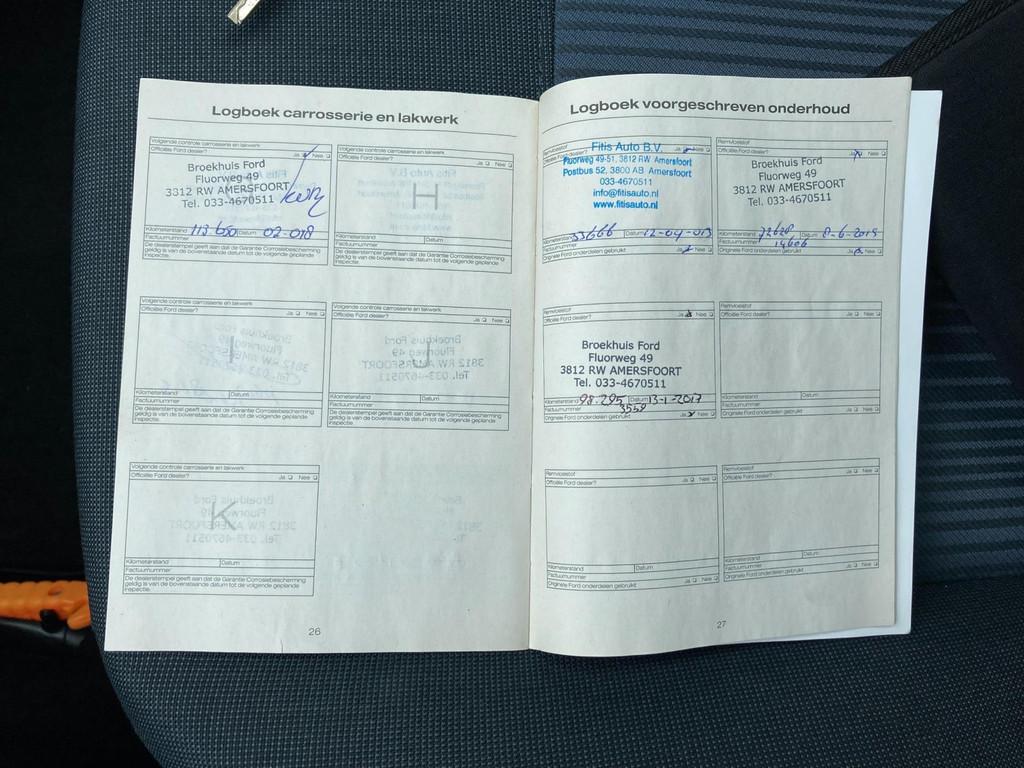 Logboek carrosserie en lakwerk
Volgende controle carrosserie en lakwerk
Officiële Ford dealer? Ja Nee
Broekhuis Ford
Fluorweg 49
3812 RW AMERSFOORT
Tel. 033-4670511
Kilometerstand 113 650 Datum 02-018
Factuurnummer
De dealerstempel geeft aan dat de Garantie Corrosiebescherming
geldig is van de bovenstaande datum tot de volgende geplande
inspectie.
Volgende controle carrosserie en lakwerk
Officiële Ford dealer? Ja Nee
H
Kilometerstand Datum
Factuurnummer
De dealerstempel geeft aan dat de Garantie Corrosiebescherming
geldig is van de bovenstaande datum tot de volgende geplande
inspectie.
Volgende controle carrosserie en lakwerk
Officiële Ford dealer? Ja Nee
I
Kilometerstand Datum
Factuurnummer
De dealerstempel geeft aan dat de Garantie Corrosiebescherming
geldig is van de bovenstaande datum tot de volgende geplande
inspectie.
Volgende controle carrosserie en lakwerk
Officiële Ford dealer? Ja Nee
J
Kilometerstand Datum
Factuurnummer
De dealerstempel geeft aan dat de Garantie Corrosiebescherming
geldig is van de bovenstaande datum tot de volgende geplande
inspectie.
Volgende controle carrosserie en lakwerk
Officiële Ford dealer? Ja Nee
K
Kilometerstand Datum
Factuurnummer
De dealerstempel geeft aan dat de Garantie Corrosiebescherming
geldig is van de bovenstaande datum tot de volgende geplande
inspectie.
26
Logboek voorgeschreven onderhoud
Remvloeistof
Officiële Ford dealer? Ja Nee
Fitis Auto B.V.
Fluorweg 49-51, 3812 RW Amersfoort
Postbus 52, 3800 AB Amersfoort
033-4670511
info@fitisauto.nl
www.fitisauto.nl
Kilometerstand 33666 Datum 12-04-013
Factuurnummer
Originele Ford onderdelen gebruikt Ja Nee
Remvloeistof
Officiële Ford dealer? Ja Nee
Broekhuis Ford
Fluorweg 49
3812 RW AMERSFOORT
Tel. 033-4670511
Kilometerstand 72628 Datum 8-6-2015
Factuurnummer 14606
Originele Ford onderdelen gebruikt Ja Nee
Remvloeistof
Officiële Ford dealer? Ja Nee
Broekhuis Ford
Fluorweg 49
3812 RW AMERSFOORT
Tel. 033-4670511
Kilometerstand 98.295 Datum 13-1-2017
Factuurnummer 3559
Originele Ford onderdelen gebruikt Ja Nee
Remvloeistof
Officiële Ford dealer? Ja Nee
Kilometerstand Datum
Factuurnummer
Originele Ford onderdelen gebruikt Ja Nee
Remvloeistof
Officiële Ford dealer? Ja Nee
Kilometerstand Datum
Factuurnummer
Originele Ford onderdelen gebruikt Ja Nee
Remvloeistof
Officiële Ford dealer? Ja Nee
Kilometerstand Datum
Factuurnummer
Originele Ford onderdelen gebruikt Ja Nee
27